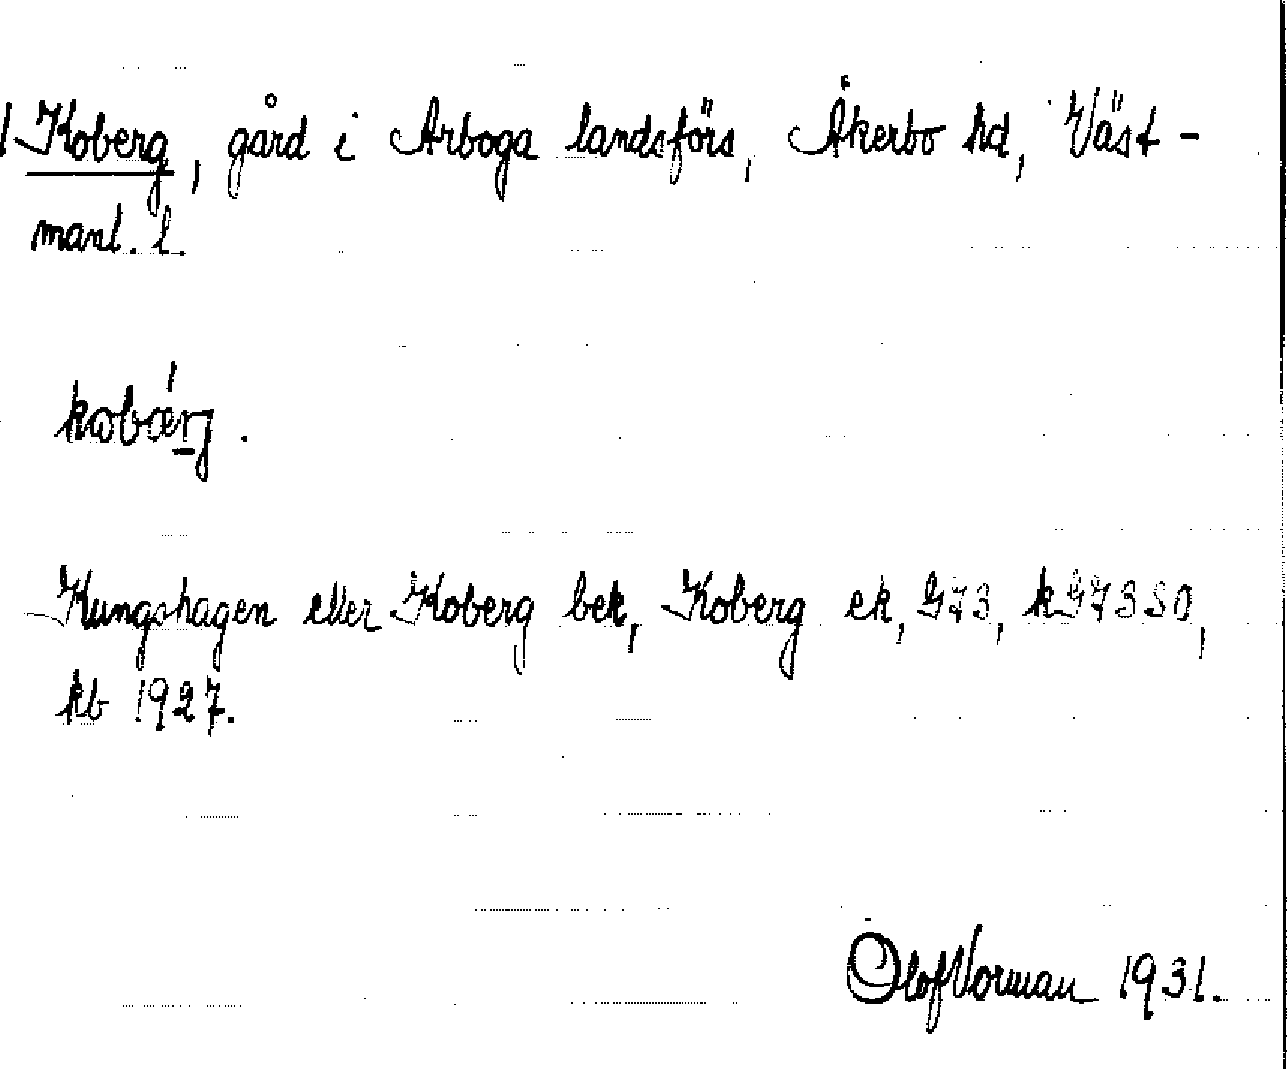 Koberg, gård i Arboga landsförs, Åkerbo hd, Väst-
manl. l.
kobærj.
Kungshagen eller Koberg bek, Koberg ek, G73, kG73SO,
kb 1927.
Olof Norman 1931.